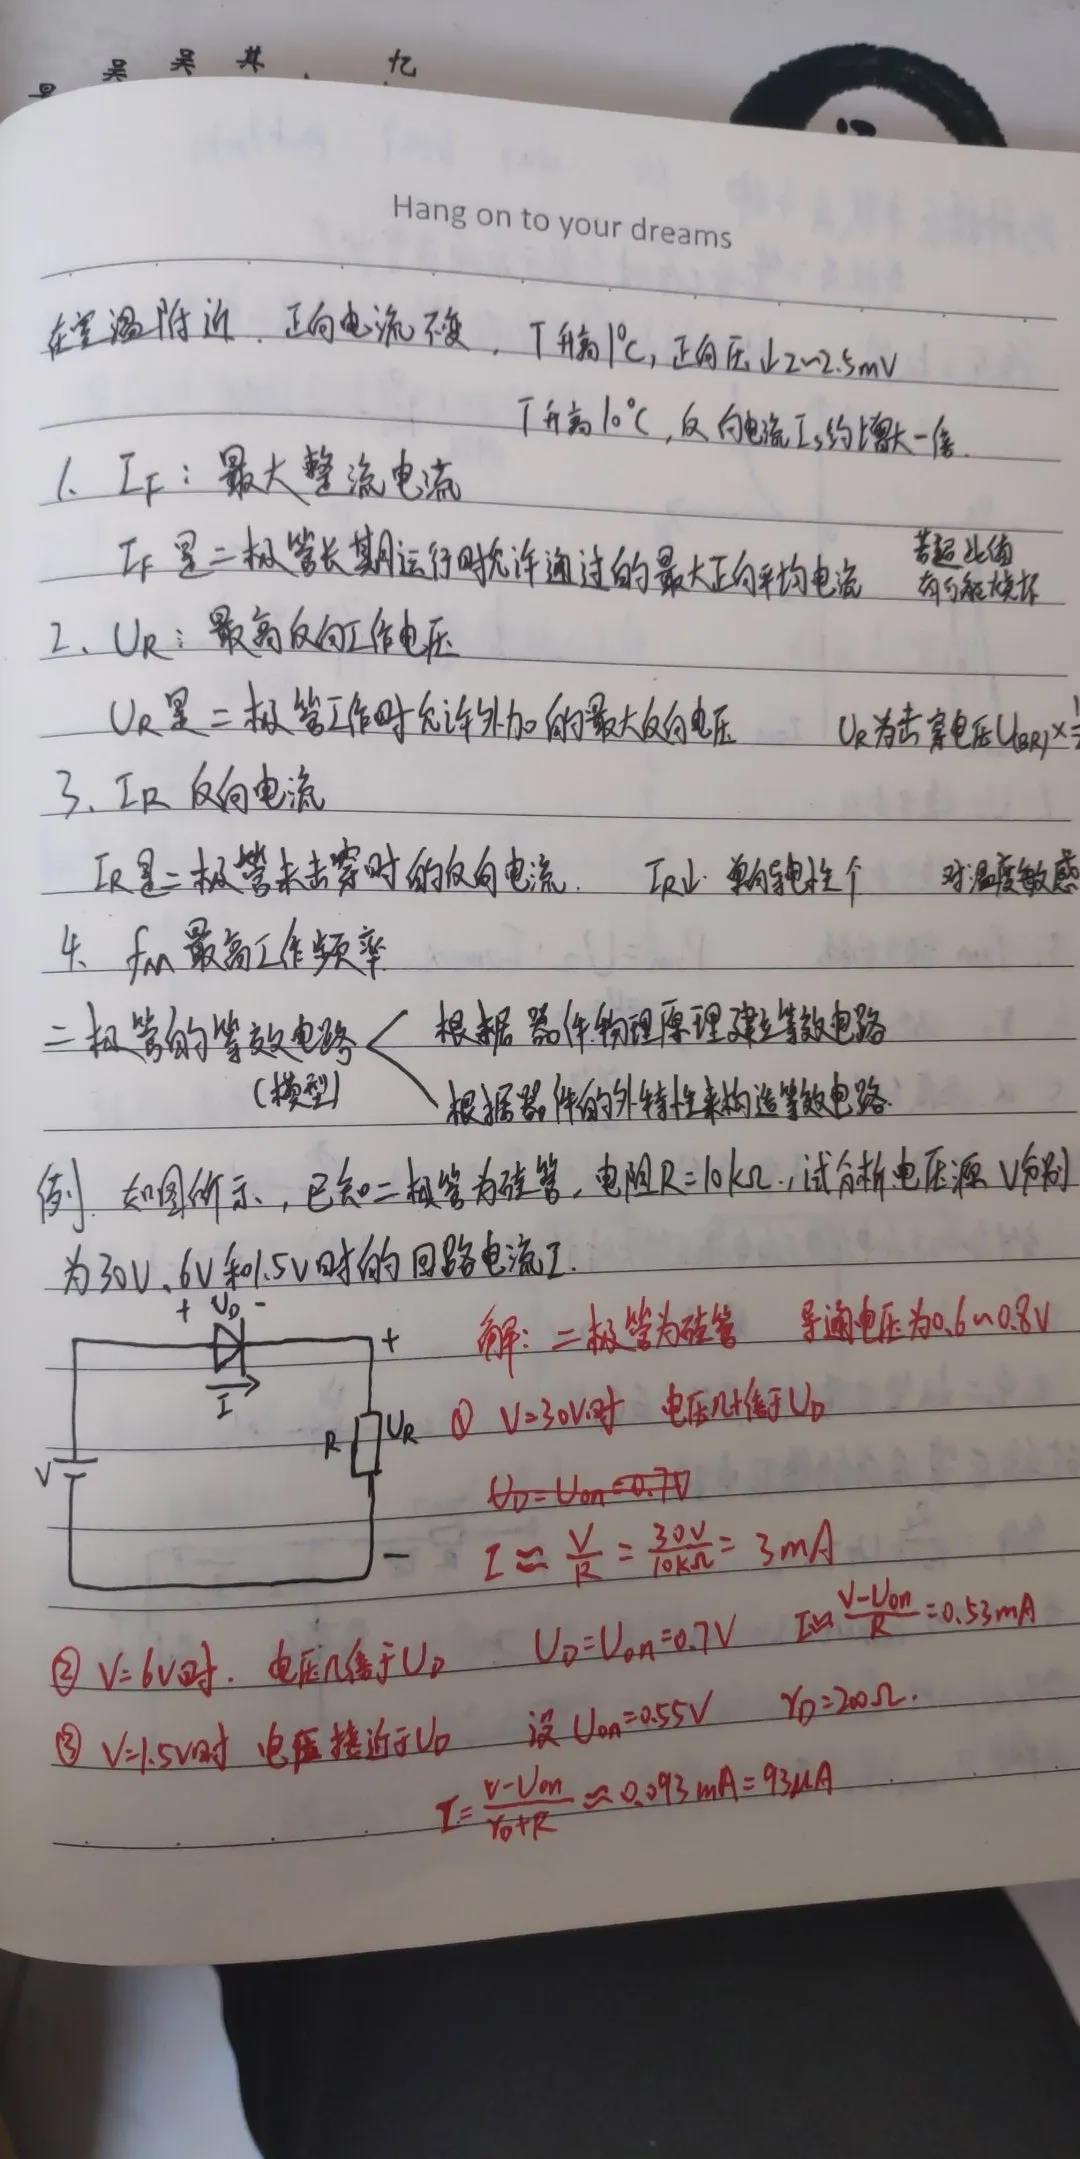 吴 吴 其 忆
Hang on to your dreams
在室温附近, 正向电流不变, T升高1℃, 正向压↓2~2.5mV
T升高10℃, 反向电流Is约增大一倍.
1、IF: 最大整流电流
IF是二极管长期运行时允许通过的最大正向平均电流 若超此值
有可能烧坏
2、UR: 最高反向工作电压
UR是二极管工作时允许外加的最大反向电压 UR为击穿电压U(BR)×
3、IR 反向电流
IR是二极管未击穿时的反向电流. IR↓ 单向导电性↑ 对温度敏感
4、fM 最高工作频率
二极管的等效电路 根据器件物理原理建立等效电路
(模型)
根据器件的外特性来构造等效电路.
例. 如图所示, 已知二极管为硅管, 电阻R=10kΩ, 试分析电压源V分别
为30V、6V和1.5V时的回路电流I.
+ UD -
I
V
R
UR
+
−
解: 二极管为硅管 导通电压为0.6~0.8V
① V=30V时 电压几十倍于UD
UD=Uon=0.7V
I≈V/R=30V/10kΩ=3mA
② V=6V时. 电压几倍于UD UD=Uon=0.7V I≈(V-Uon)/R=0.53mA
③ V=1.5V时 电压接近于UD 设Uon=0.55V rD=200Ω.
I=(V-Uon)/(rD+R)≈0.093mA=93μA